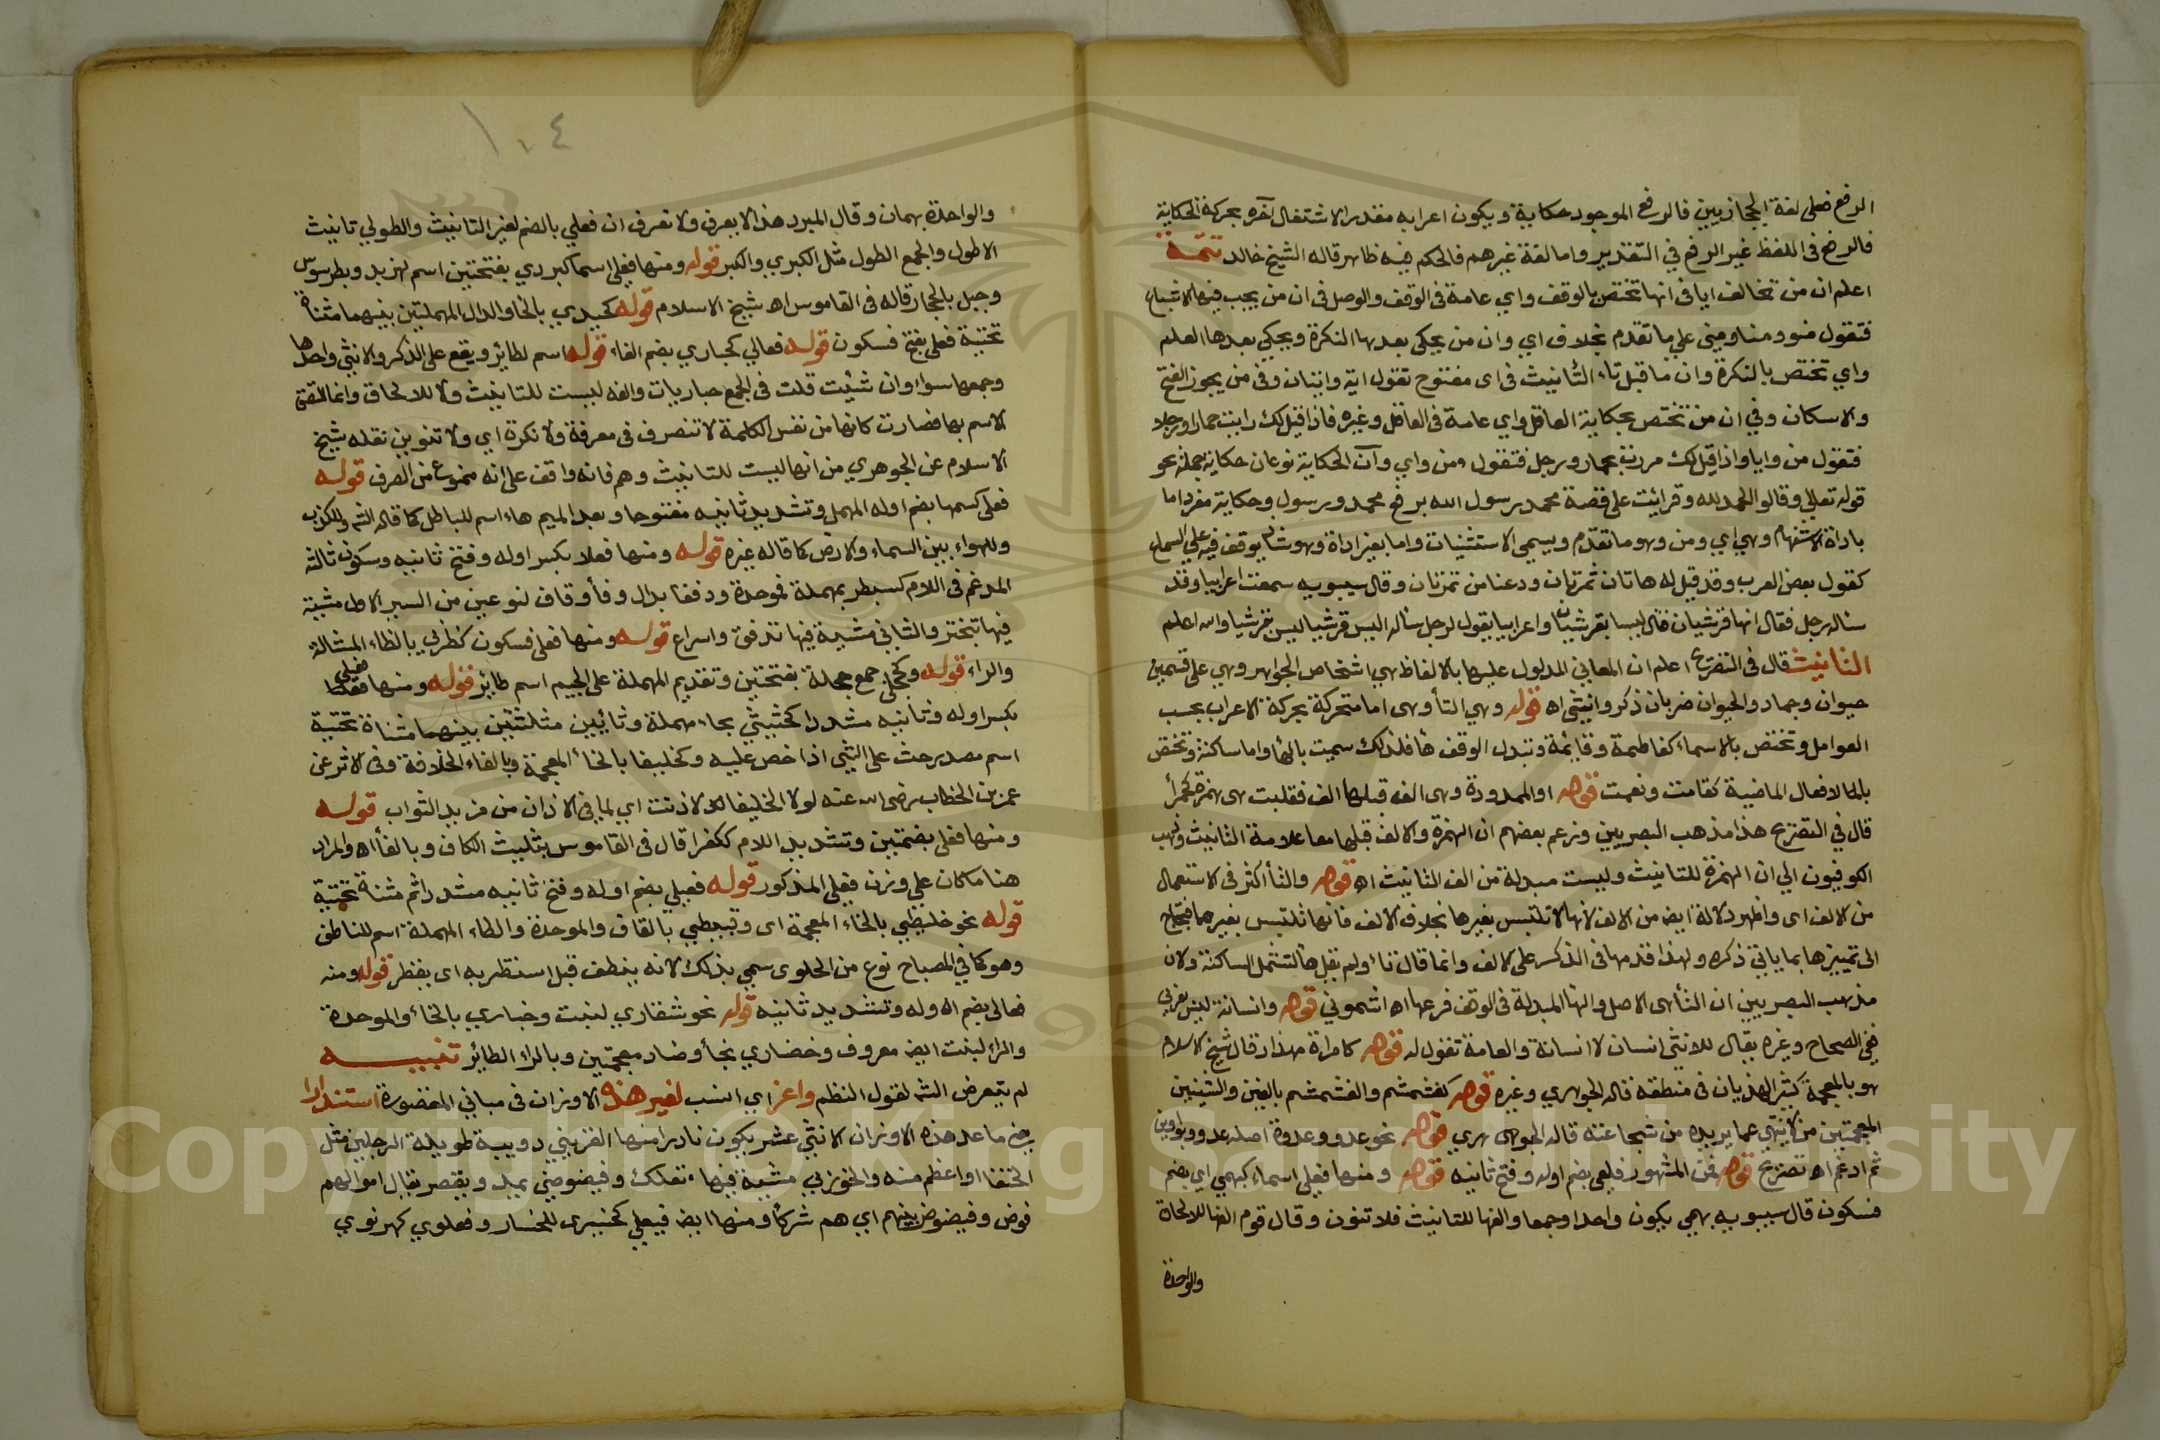 الرفع فعلى لغة الحجازيين فالرفع الموجود حكاية ويكون اعرابه مقدرا لاشتغال آخره بحركة الحكاية
فالرفع في اللفظ غير الرفع في التقدير واما لغة غيرهم فالحكم فيه ظاهر قاله الشيخ خالد تتمة
اعلم ان من تخالف ايا في انها تختص بالوقف واي عامة في الوقف والوصل في ان من يجب فيها الاشباع
فتقول منو ومنا ومني على ما تقدم بخلاف اي وان من يحكى بعدها النكرة ويحكي بعدها العلم
واي تختص بالنكرة وان ما قبل تاء التأنيث في اى مفتوح تقول اية وايتان وفي من يجوز الفتح
والاسكان وفي ان من تختص بحكاية العاقل واي عامة في العاقل وغيره فاذا قيل لك رايت حمارا ورجلا
فتقول من وايا واذا قيل لك مررت بحمار ورجل فتقول من واي وآن الحكاية نوعان حكاية جملة نحو
قوله تعالى وقالوا الحمد لله وقرائت على قصة محمد رسول الله برفع محمد ورسول وحكاية مفرد اما
باداة الاستفهام وهي اي ومن وهو ما تقدم ويسمى الاستثبات واما بغير اداة وهو شاذ يوقف فيه على السماع
كقول بعض العرب وقد قيل له هاتان تمرتان ودعنا من تمرتان وقال سيبويه سمعت اعرابيا وقد
ساله رجل فقال انهما قرشيان فقال ليسا بقرشيان واعرابيا يقول لرجل سأله اليس قرشيا ليس بقرشيا والله اعلم
التانيث قال في التصريح اعلم ان المعاني المدلول عليها بالالفاظ هي اشخاص الجواهر وهي على قسمين
حيوان وجماد والحيوان ضربان ذكر وانثى اه قوله وهي التا وهى اما متحركة بحركة الاعراب بحسب
العوامل وتختص بالاسماء كفاطمة وقايمة وتبدل الوقف ها فلذلك سميت بالها واما ساكنة وتختص
بالافعال الماضية كقامت ونعمت قوله او الممدودة وهى الف قبلها الف فقلبت هى همزة كحمرا
قال في التصريح هذا مذهب البصريين وزعم بعضهم ان الهمزة والالف قبلها معا علامة التانيث وذهب
الكوفيون الى ان الهمزة للتانيث وليست مبدلة من الف التانيث اه قوله والتا اكثر في الاستعمال
من الالف اى واظهر دلالة ايضا من الالف لانها لا تلتبس بغيرها بخلاف الالف فانها تلتبس بغيرها فيحتاج
الى تمييزها بما ياتي ذكره ولهذا قدمها في الذكر على الالف وانما قال تا ولم يقل ها لتشتمل الساكنة ولان
مذهب البصريين ان التا هي الاصل والها المبدلة في الوقف فرعها اه اشموني قوله وانسانة ليس بعربي
ففي الصحاح وغيره يقال للانثى انسان لا انسانة والعامة تقول له قوله كامراة مهذار قال شيخ الاسلام
هو بالمعجمة كثير الهذيان في منطقه قاله الجوهري وغيره قوله كغشمشم والغشمشم بالغين والشينين
المعجمتين من لا ينتهي عما يريده من شجاعته قاله الجوهري قوله نحو عدو وعدوة اصله عدوو بواوين
ثم ادغم اه تصريح قوله فمن المشهور فعلى بضم اوله وفتح ثانيه قوله ومنها فعلى اسماء كبهمي اي بضم
فسكون قال سيبويه بهمي يكون واحدا وجمعا والفها للتانيث فلا تنون وقال قوم الفها للالحاق
والواحدة
١٠٤
والواحدة بهمان وقال المبرد هذا لا يعرف ولا تعرف ان فعلي بالضم لغير التانيث والطولي تانيث
الاطول والجمع الطول مثل الكبري والكبر قوله ومنها فعلى اسما كبردي بفتحتين اسم لنهر بدمشق
وجبل بالحجاز قاله في القاموس اه شيخ الاسلام قوله كحيدي بالحا والدال المهملتين بينهما مثناة
تحتية فعلى بفتح فسكون قوله فعالي كحباري بضم الفاء قوله اسم لطائر ويقع على الذكر والانثى واحدها
وجمعها سواء وان شئت قلت في الجمع حباريات والفه ليست للتانيث ولا للالحاق وانما بني
الاسم بها فصارت كانها من نفس الكلمة لا تنصرف في معرفة ولا نكرة اي ولا تنوين نقله شيخ
الاسلام عن الجوهري من انها ليست للتانيث وهم فانه واقف على انه ممنوع من الصرف قوله
فعلى كسمهى بضم اوله المهمل وتشديد ثانيه مفتوحا وبعد الميم هاء اسم للباطل كما قاله الشم وللكذب
وللهواء بين السماء والارض كما قاله غيره قوله ومنها فعلا بكسر اوله وفتح ثانيه وسكون ثالثه
المدغم في اللام كسبطر بمهملة فموحدة ودفقا بدال وفا وقاف لنوعين من السير الاول مشية
فيها تبختر والثاني مشية فيها تدفق واسراع قوله ومنها فعلى فسكون كظربي بالظاء المشالة
والراء قوله وكحجلى جمع حجلة بفتحتين وتقديم المهملة على الجيم اسم طائر قوله ومنها فعيلى
بكسر اوله وثانيه مشددا كحثيثي بحاء مهملة وثائين مثلثتين بينهما مثناة تحتية
اسم مصدر حث على الشي اذا حض عليه وكخليفا بالخا المعجمة وبالفاء الخلافة وفي الاثر عن
عمر بن الخطاب رضى الله عنه لولا الخليفا لاذنت اي لما في الاذان من مزيد الثواب قوله
ومنها فعلى بضمتين وتشديد اللام ككفرا قال في القاموس بتثليث الكاف وبالفا اه والمراد
هنا ما كان على وزن فعلى المذكور قوله فعيلي بضم اوله وفتح ثانيه مشددا ثم مثناة تحتية
قوله نحو خليطي بالخاء المعجمة اى وقبيطي بالقاف والموحدة والطاء المهملة اسم للناطف
وهو كما في المصباح نوع من الحلوى سمي بذلك لانه ينطف قبل استضرابه اى يقطر قوله ومنه
فعالى بضم اوله وتشديد ثانيه قوله نحو شقاري لنبت وخباري بالخا والموحدة
والراء لنبت ايضا معروف وخضاري بخا وضاد معجمتين وبالراء الطائر تنبيه
لم يتعرض الشم لقول النظم واعز اي انسب لغير هذه الاوزان في مباني المقصورة استندارا
ما عدا هذه الاوزان الاثني عشر يكون نادرا منها القرنبي دويبة طويلة الرجلين مثل
الخنفسا او اعظم منه والخوزلي مشية فيها تفكك وفيضوضي بمد ويقصر يقال اموالهم
فوض وفيضوض بينهم اي هم شركا ومنها ايضا فيعلى كخيسرى للخسار وفعلوي كهرنوي